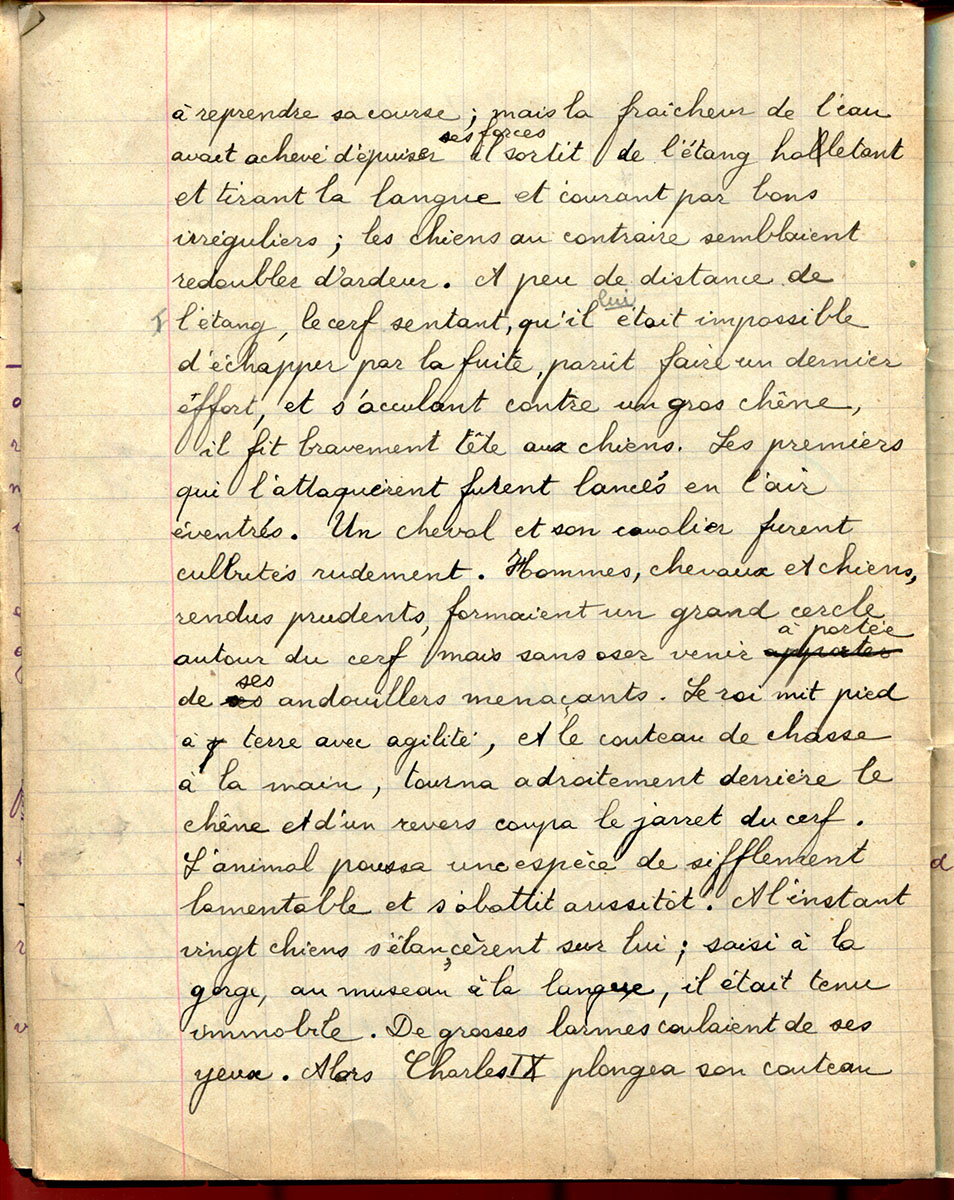 à reprendre sa course ; mais la fraîcheur de l'eau
avait achevé d'épuiser ses forces il sortit de l'étang haletant
et tirant la langue et courant par bons
irréguliers ; les chiens au contraire semblaient
redoubler d'ardeur. A peu de distance de
l'étang, le cerf sentant, qu'il lui était impossible
d'échapper par la fuite, parut faire un dernier
éffort, et s'acculant contre un gros chêne,
il fit bravement tête aux chiens. Les premiers
qui l'attaquèrent furent lancés en l'air
éventrés. Un cheval et son cavalier furent
culbutés rudement. Hommes, chevaux et chiens,
rendus prudents, formaient un grand cercle
autour du cerf mais sans oser venir à portée
de ses andouillers menaçants. Le roi mit pied
à terre avec agilité, et le couteau de chasse
à la main, tourna adroitement derrière le
chêne et d'un revers coupa le jarret du cerf.
L'animal poussa une espèce de sifflement
lamentable et s'abattit aussitôt. A l'instant
vingt chiens s'élancèrent sur lui ; saisi à la
gorge, au museau, à la langue, il était tenu
immobile. De grosses larmes coulaient de ses
yeux. Alors Charles IX plongea son couteau